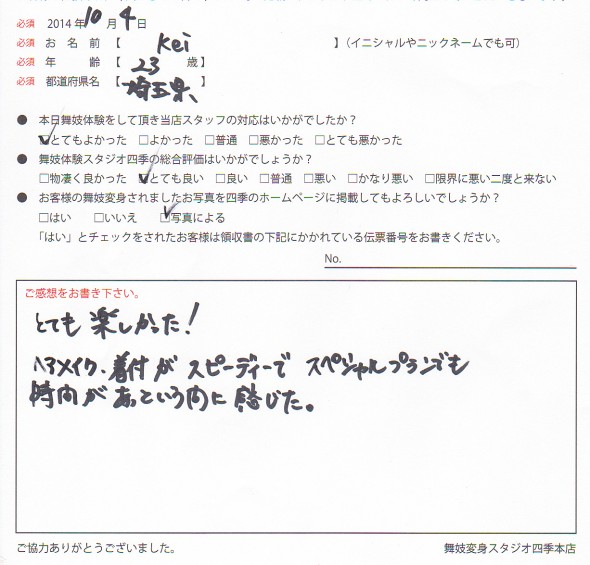 必須 2014年10月4日
必須 お名前【 Kei 】(イニシャルやニックネームでも可)
必須 年齢【 23 歳】
必須 都道府県名【埼玉県、】
● 本日舞妓体験をして頂き当店スタッフの対応はいかがでしたか?
☑とてもよかった □よかった □普通 □悪かった □とても悪かった
● 舞妓体験スタジオ四季の総合評価はいかがでしょうか?
□物凄く良かった ☑とても良い □良い □普通 □悪い □かなり悪い □限界に悪い二度と来ない
● お客様の舞妓変身されましたお写真を四季のホームページに掲載してもよろしいでしょうか?
□はい □いいえ ☑写真による
「はい」とチェックをされたお客様は領収書の下記にかかれている伝票番号をお書きください。
No.
ご感想をお書き下さい。
とても楽しかった!
ヘアメイク・着付がスピーディーでスペシャルプランでも
時間があっという間に感じた。
ご協力ありがとうございました。 舞妓変身スタジオ四季本店